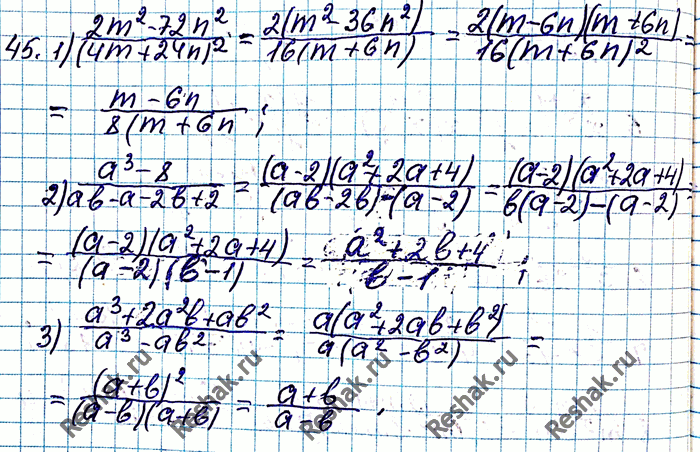 45. 1) (2m²-72n²)/(4m+24n)² = 2(m²-36n²)/16(m+6n) = 2(m-6n)(m+6n)/16(m+6n)² =
= (m-6n)/8(m+6n ;
2) (a³-8)/(aв-a-2в+2) = (a-2)(a²+2a+4)/(aв-2в)-(a-2) = (a-2)(a²+2a+4)/в(a-2)-(a-2) =
= (a-2)(a²+2a+4)/(a-2)(в-1) = (a²+2в+4)/(в-1) ;
3) (a³+2a²в+aв²)/(a³-aв²) = a(a²+2aв+в²)/a(a²-в²) =
= (a+в)²/(a-в)(a+в) = (a+в)/(a-в) .
Reshak.ru Reshak.ru Reshak.ru Reshak.ru